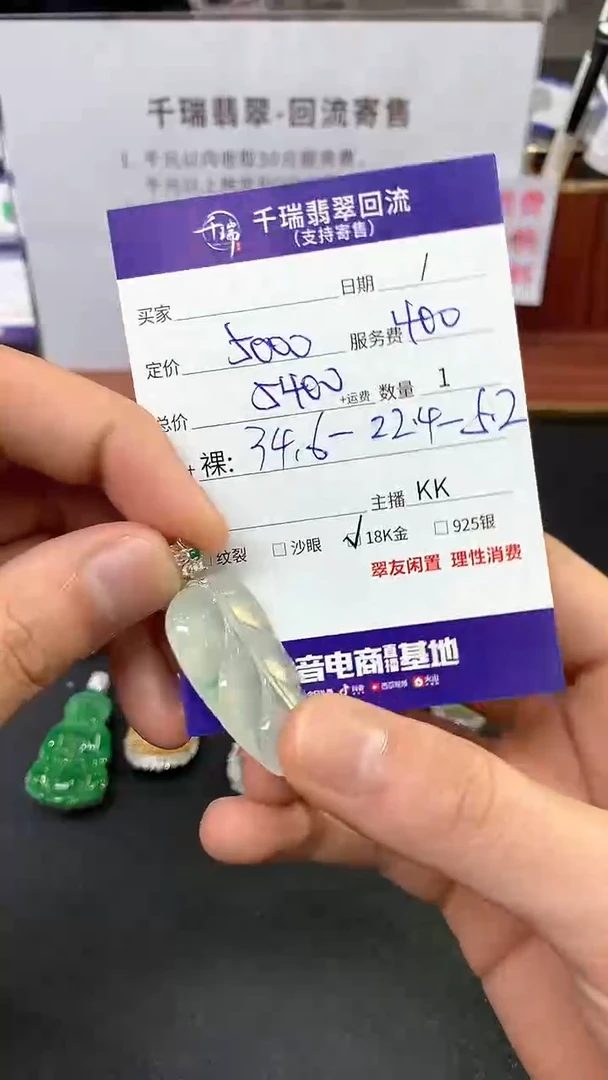 千瑞翡翠-回流寄售
1. 千元以内收取50元服务费,
千元以上
千瑞
千瑞翡翠回流
(支持寄售)
买家 日期 /
定价 5000 服务费 400
总价 5400 +运费 数量 1
+ 裸: 34.6-22.4-5.2
主播 KK
纹裂 □ 沙眼 ☑ 18K金 □ 925银
翠友闲置 理性消费
音电商直播基地
抖音 西瓜视频 火山